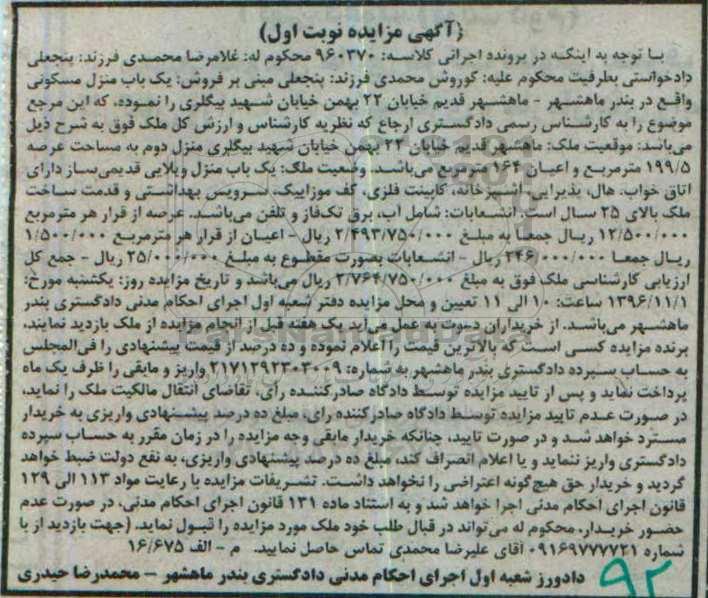 (آگهی مزایده نوبت اول)
با توجه به اینکه در پرونده اجرائی کلاسه: ۹۶۰۳۷۰ محکوم له: غلامرضا محمدی فرزند: پنجعلی
دادخواستی بطرفیت محکوم علیه: کوروش محمدی فرزند: پنجعلی مبنی بر فروش: یک باب منزل مسکونی
واقع در بندر ماهشهر - ماهشهر قدیم خیابان ۲۲ بهمن خیابان شهید بیگلری را نموده، که این مرجع
موضوع را به کارشناس رسمی دادگستری ارجاع که نظریه کارشناس و ارزش کل ملک فوق به شرح ذیل
می‌باشد: موقعیت ملک: ماهشهر قدیم خیابان ۲۲ بهمن خیابان شهید بیگلری منزل دوم به مساحت عرصه
۱۹۹/۵ مترمربع و اعیان ۱۶۴ مترمربع می‌باشد. وضعیت ملک: یک باب منزل ویلایی قدیمی‌ساز دارای
اتاق خواب، هال، پذیرایی، آشپزخانه، کابینت فلزی، کف موزاییک، سرویس بهداشتی و قدمت ساخت
ملک بالای ۲۵ سال است. انشعابات: شامل آب، برق تک‌فاز و تلفن می‌باشد. عرصه از قرار هر مترمربع
۱۲/۵۰۰/۰۰۰ ریال جمعا به مبلغ ۲/۴۹۳/۷۵۰/۰۰۰ ریال - اعیان از قرار هر مترمربع ۱/۵۰۰/۰۰۰
ریال جمعا ۲۴۶/۰۰۰/۰۰۰ ریال - انشعابات بصورت مقطوع به مبلغ ۲۵/۰۰۰/۰۰۰ ریال - جمع کل
ارزیابی کارشناسی ملک فوق به مبلغ ۲/۷۶۴/۷۵۰/۰۰۰ ریال می‌باشد و تاریخ مزایده روز: یکشنبه مورخ:
۱۳۹۶/۱۱/۱ ساعت: ۱۰ الی ۱۱ تعیین و محل مزایده دفتر شعبه اول اجرای احکام مدنی دادگستری بندر
ماهشهر می‌باشد. از خریداران دعوت به عمل می‌آید یک هفته قبل از انجام مزایده از ملک بازدید نمایند.
برنده مزایده کسی است که بالاترین قیمت را اعلام نموده و ده درصد از قیمت پیشنهادی را فی‌المجلس
به حساب سپرده دادگستری بندر ماهشهر به شماره: ۲۱۷۱۲۹۲۳۰۳۰۰۹ واریز و مابقی را ظرف یک ماه
پرداخت نماید و پس از تایید مزایده توسط دادگاه صادرکننده رای، تقاضای انتقال مالکیت ملک را نماید،
در صورت عدم تایید مزایده توسط دادگاه صادرکننده رای، مبلغ ده درصد پیشنهادی واریزی به خریدار
مسترد خواهد شد و در صورت تایید، چنانکه خریدار مابقی وجه مزایده را در زمان مقرر به حساب سپرده
دادگستری واریز ننماید و یا اعلام انصراف کند، مبلغ ده درصد پیشنهادی واریزی، به نفع دولت ضبط خواهد
گردید و خریدار حق هیچ‌گونه اعتراضی را نخواهد داشت. تشریفات مزایده با رعایت مواد ۱۱۳ الی ۱۲۹
قانون اجرای احکام مدنی اجرا خواهد شد و به استناد ماده ۱۳۱ قانون اجرای احکام مدنی، در صورت عدم
حضور خریدار، محکوم له می‌تواند در قبال طلب خود ملک مورد مزایده را قبول نماید. (جهت بازدید از با
شماره ۰۹۱۶۹۷۷۷۷۲۱ آقای علیرضا محمدی تماس حاصل نمایید. م - الف ۱۶/۶۷۵
دادورز شعبه اول اجرای احکام مدنی دادگستری بندر ماهشهر - محمدرضا حیدری
۹۲